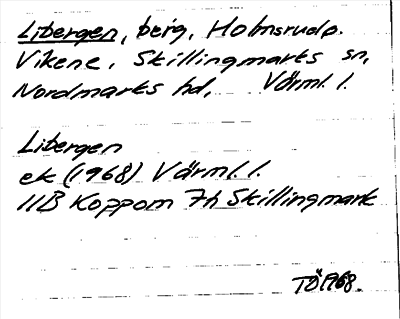 Libergen, berg, Holmsrudp.
Vikene, Skillingmarks sn,
Nordmarks hd, Värml. l.
Libergen
ek (1968) Värml. l.
11B Koppom 7h Skillingmark
TÖ 1968.